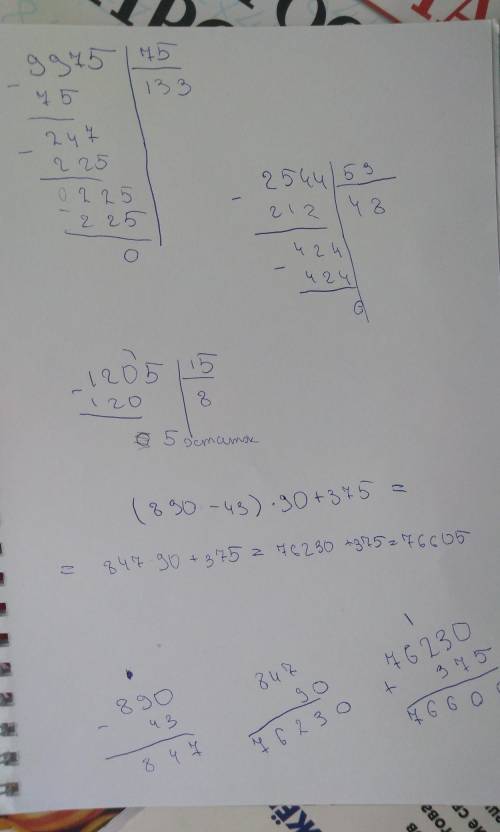 9975 75
- 75 133
247
- 225
0225
- 225
0
2544 53
- 212 48
424
- 424
0
1205 15
- 120 8
5 остаток
(890 - 43) · 90 + 375 =
= 847 · 90 + 375 = 76230 + 375 = 76605
890
- 43
847
847
90
76230
1
76230
+ 375
7660